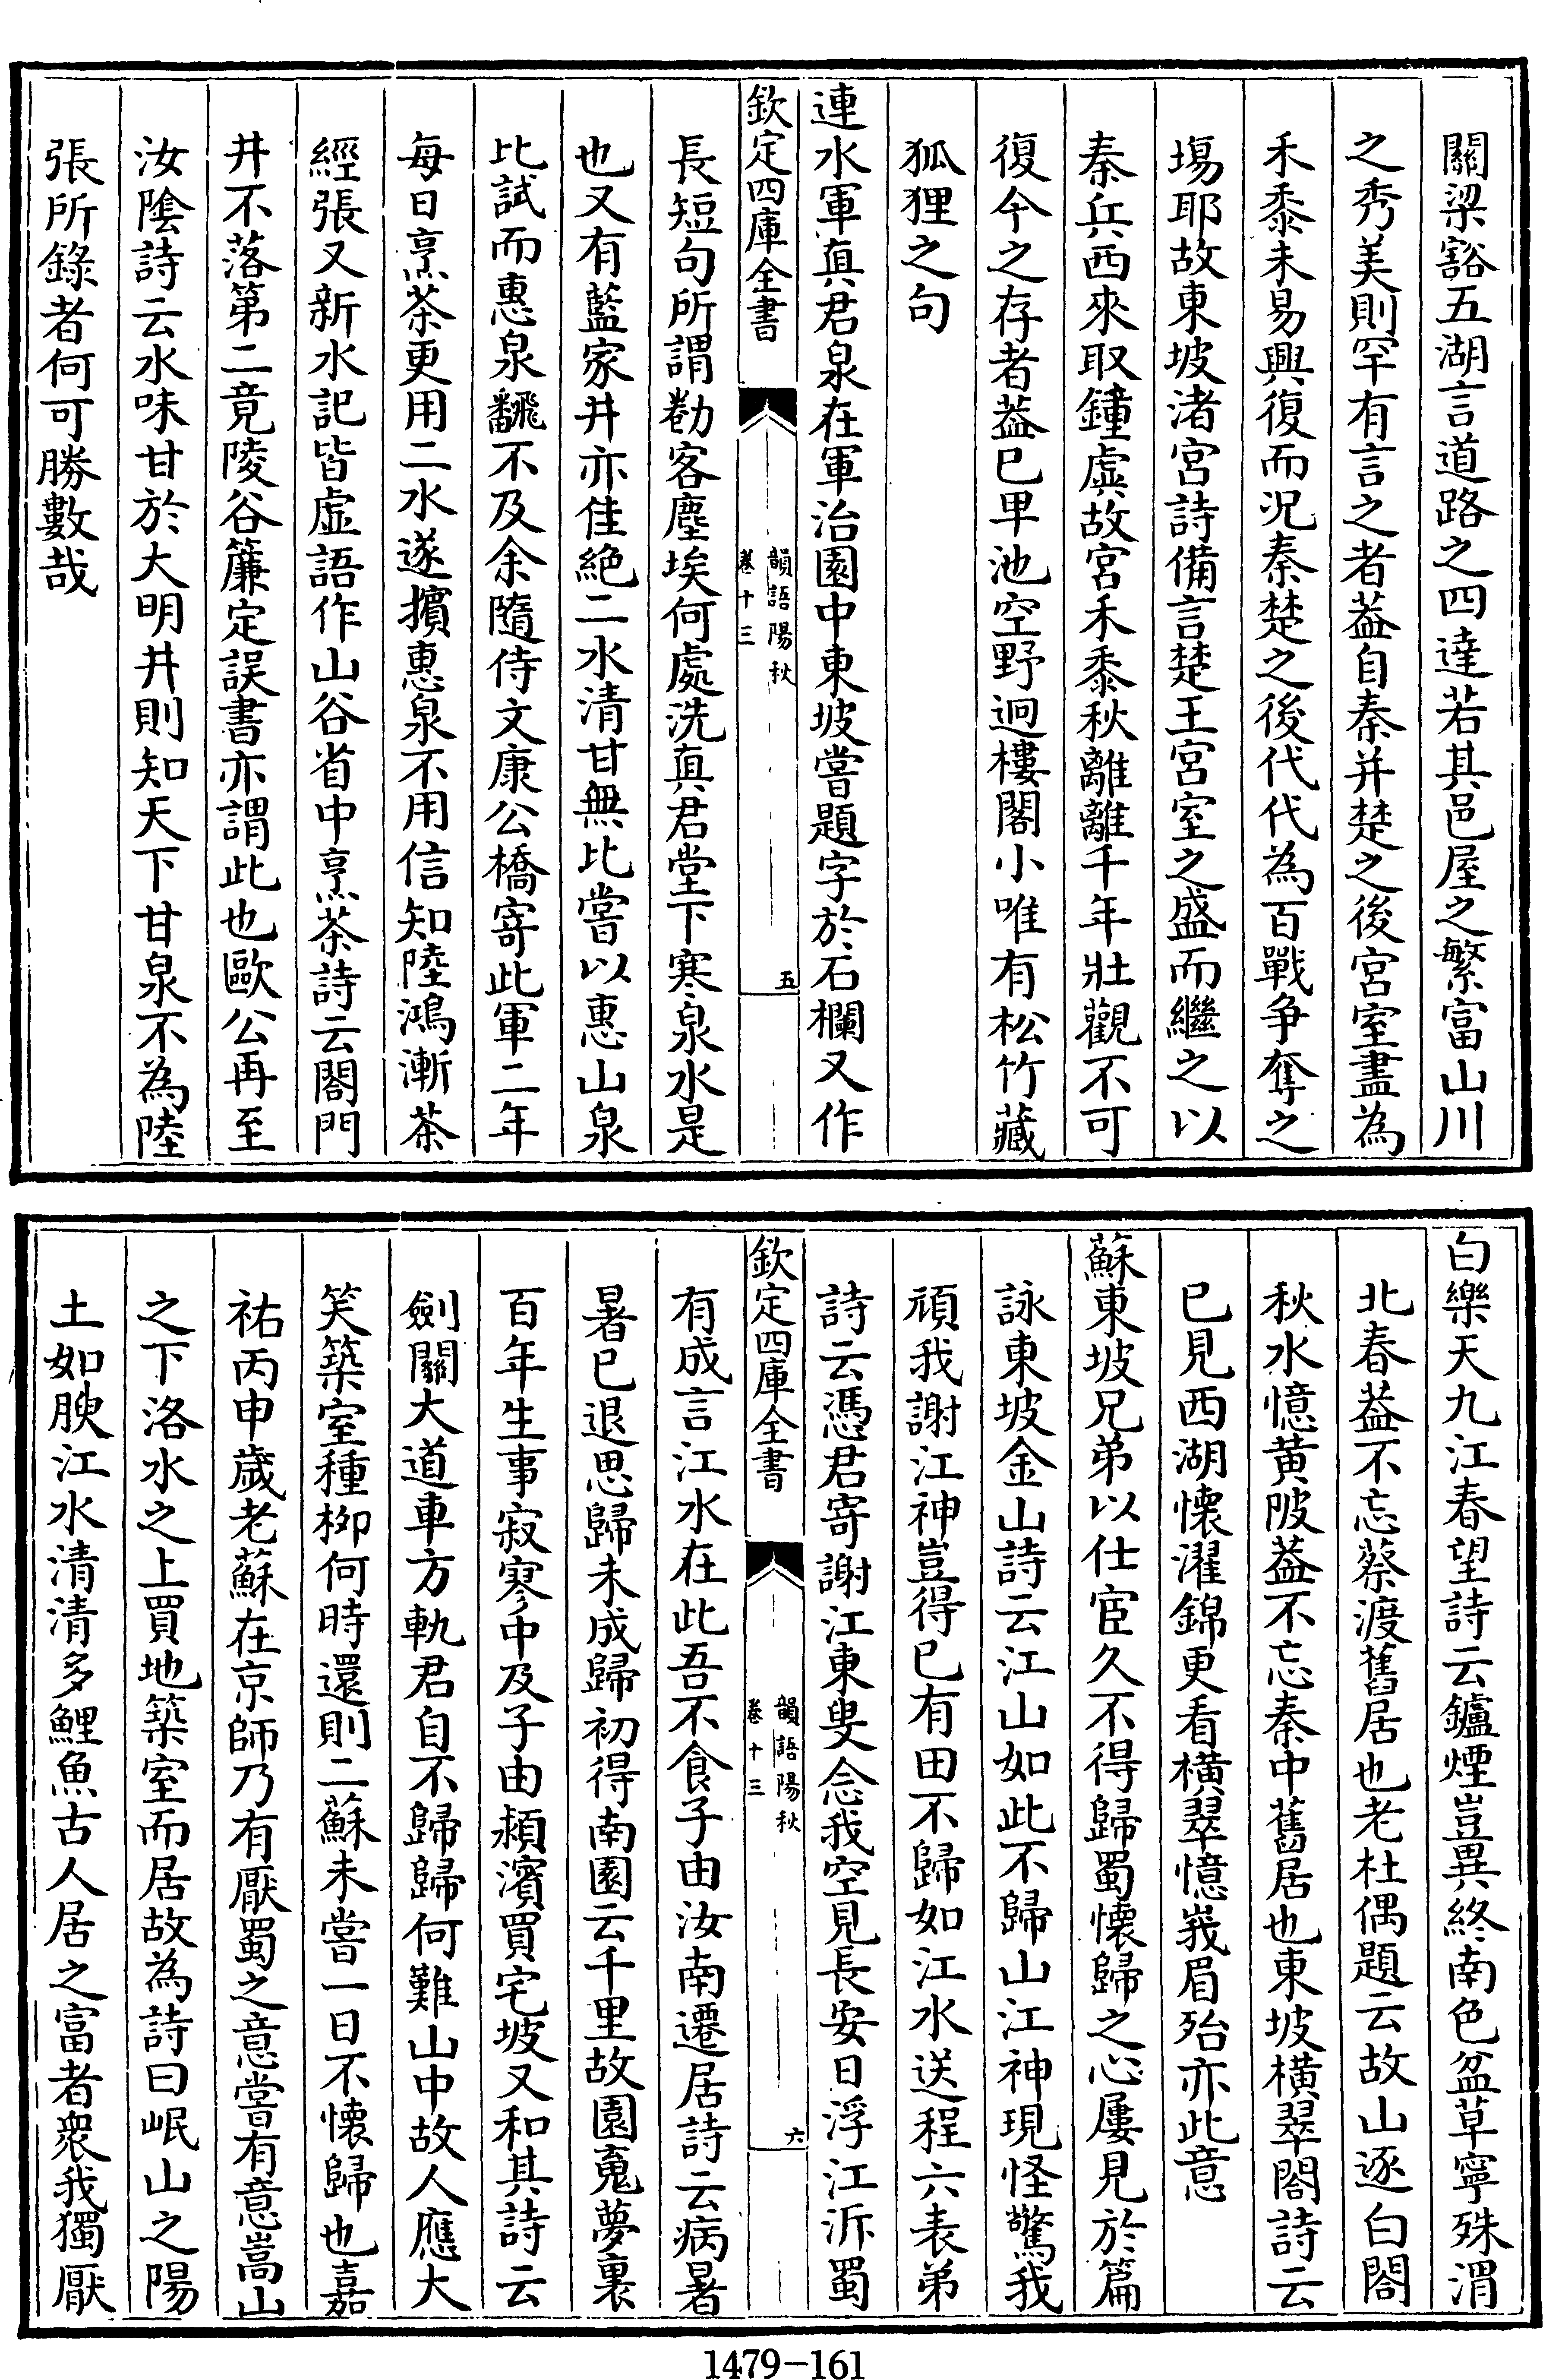 關梁豁五湖言道路之四達若其邑屋之繁富山川
之秀美則罕有言之者葢自秦并楚之後宮室盡為
禾黍未易興復而况秦楚之後代代為百戰争奪之
場耶故東坡渚宮詩備言楚王宮室之盛而繼之以
秦兵西來取鐘虡故宮禾黍秋離離千年壯觀不可
復今之存者葢已卑池空野迥樓閣小唯有松竹藏
狐狸之句
連水軍真君泉在軍治園中東坡嘗題字於石欄又作
欽定四庫全書
韻語陽秋
卷十三
五
長短句所謂勸客塵埃何處洗真君堂下寒泉水是
也又有藍家井亦佳絕二水清甘無比嘗以惠山泉
比試而惠泉飜不及余隨侍文康公橋寄此軍二年
每日烹茶更用二水遂擯惠泉不用信知陸鴻漸茶
經張又新水記皆虛語作山谷省中烹茶詩云閤門
井不落第二竟陵谷簾定誤書亦謂此也歐公再至
汝陰詩云水味甘於大明井則知天下甘泉不為陸
張所錄者何可勝數哉
白樂天九江春望詩云鑪煙豈異終南色盆草寧殊渭
北春葢不忘蔡渡舊居也老杜偶題云故山逐白閤
秋水憶黄陂葢不忘秦中舊居也東坡橫翠閣詩云
已見西湖懷濯錦更看橫翠憶峩眉殆亦此意
蘇東坡兄弟以仕宦久不得歸蜀懷歸之心屢見於篇
詠東坡金山詩云江山如此不歸山江神現怪驚我
頑我謝江神豈得已有田不歸如江水送程六表弟
詩云憑君寄謝江東叟念我空見長安日浮江泝蜀
欽定四庫全書
韻語陽秋
卷十三
六
有成言江水在此吾不食子由汝南遷居詩云病暑
暑已退思歸未成歸初得南園云千里故園䰟夢裏
百年生事寂寥中及子由潁濱買宅坡又和其詩云
劍關大道車方軌君自不歸歸何難山中故人應大
笑築室種柳何時還則二蘇未嘗一日不懷歸也嘉
祐丙申歲老蘇在京師乃有厭蜀之意嘗有意嵩山
之下洛水之上買地築室而居故為詩曰岷山之陽
土如腴江水清清多鯉魚古人居之富者衆我獨厭
1479-161